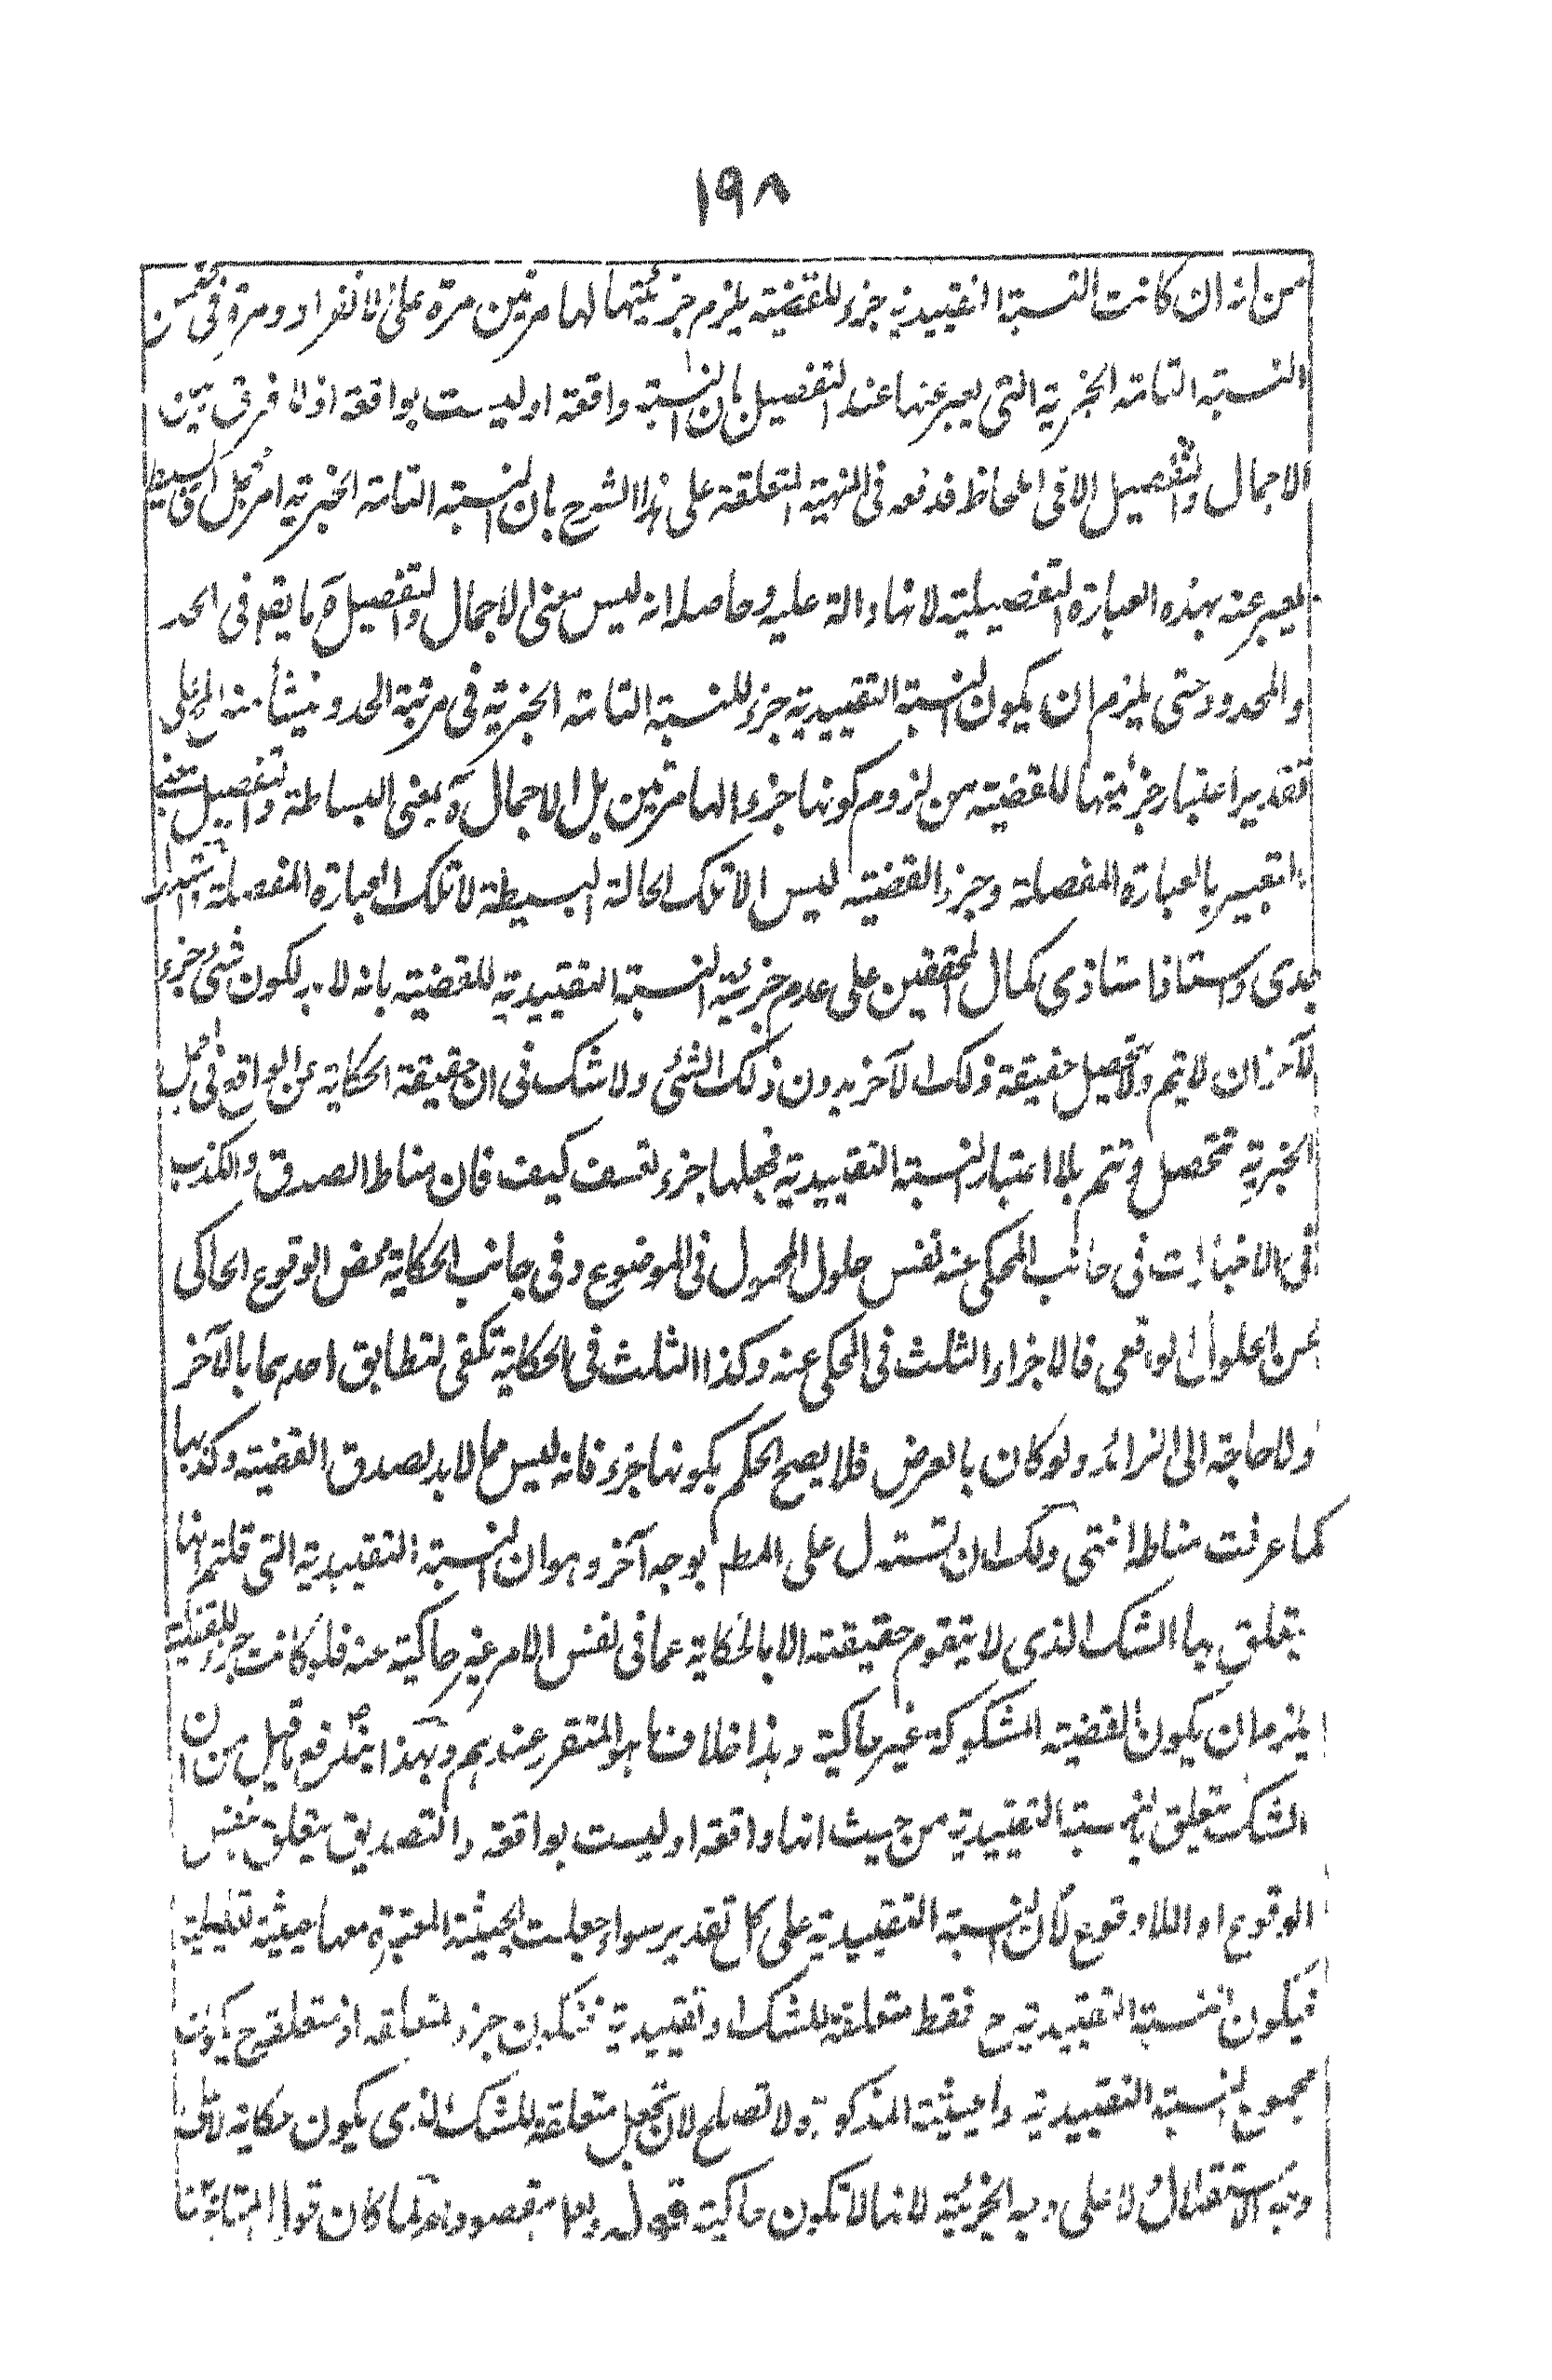 ١٩٨
من انه ان كانت النسبة التقييدية جزء للقضية يلزم جزئيتها لها مرتين مرة على الانفراد ومرة فى ضمن
النسبة التامة الخبرية التى يعبر عنها عند التفصيل بان النسبة واقعة او ليست بواقعة اذ لا فرق بين
الاجمال والتفصيل الا فى اللحاظ فدفعه فى المنهية المتعلقة على هذا الشرح بان النسبة التامة الخبرية امر مجمل اى بسيط
يعبر عنه بهذه العبارة التفصيلية لانها دالة عليه وحاصله انه ليس معنى الاجمال والتفصيل ههنا ما يقع فى الحد
والمحدود حتى يلزم ان يكون النسبة التقييدية جزء للنسبة التامة الخبرية فى مرتبة الحد وينشأ منه المخلص على
تقدير اعتبار جزئيتها للقضية من لزوم كونها جزء الها مرتين بل الاجمال ههنا بمعنى البساطة والتفصيل بمعنى
التعبير بالعبارة المفصلة وجزء القضية ليس الا تلك الحالة البسيطة لا تلك العبارة المفصلة واستدل
جدى واستاذ استاذى كمال المحققين على عدم جزئية النسبة التقييدية للقضية بانه لا بد لكون شئ جزء
لآخر ان لا يتم ولا يحصل حقيقة ذلك الآخر بدون ذلك الشئ ولا شك فى ان حقيقة الحكاية عن الواقع فى الجمل
الخبرية تتحصل وتتم بلا اعتبار النسبة التقييدية فجعلها جزء تعسف كيف فان مناط الصدق والكذب
فى الاخبارات فى جانب المحكى عنه نفس حلول المحمول فى الموضوع وفى جانب الحكاية محض الوقوع الحاكى
عن الحلول الواقعى فالاجزاء الثلث فى المحكى عنه وكذا الثلث فى الحكاية تكفى لتطابق احدهما بالآخر
ولا حاجة الى الزائد ولو كان بالعرض فلا يصح الحكم بكونها جزء فانه ليس مما لا بد لصدق القضية وكذبها
كما عرفت مناطه انتهى ولك ان تستدل على المطم بوجه آخر وهو ان النسبة التقييدية التى قلتم انها
يتعلق بها الشك الذى لا يتقوم حقيقته الا بالحكاية عما فى نفس الامر غير حاكية عنه فلو كانت جزء للقضية
يلزم ان يكون القضية المشكوكة غير حاكية وهذا خلاف ما هو المتقرر عندهم وبهذا يندفع ما قيل من ان
الشك يتعلق بالنسبة التقييدية من حيث انها واقعة او ليست بواقعة والتصديق يتعلق بنفس
الوقوع او اللاوقوع لان النسبة التقييدية على كل تقدير سواء جعلت الحيثية المعتبرة معها حيثية تعليلية
فيكون النسبة التقييدية ح فقط متعلقة للشك او تقييدية فتكون جزء لمتعلقه اذ متعلقه ح يكون
مجموع النسبة التقييدية والحيثية المذكورة ولا تصلح لان تجعل متعلقة للشك الذى يكون حكاية لا على
وجه الاستقلال ولا على وجه الجزئية لانها لا تكون حاكية قوله ولعل مقصوده لما كان قول المتأخرين